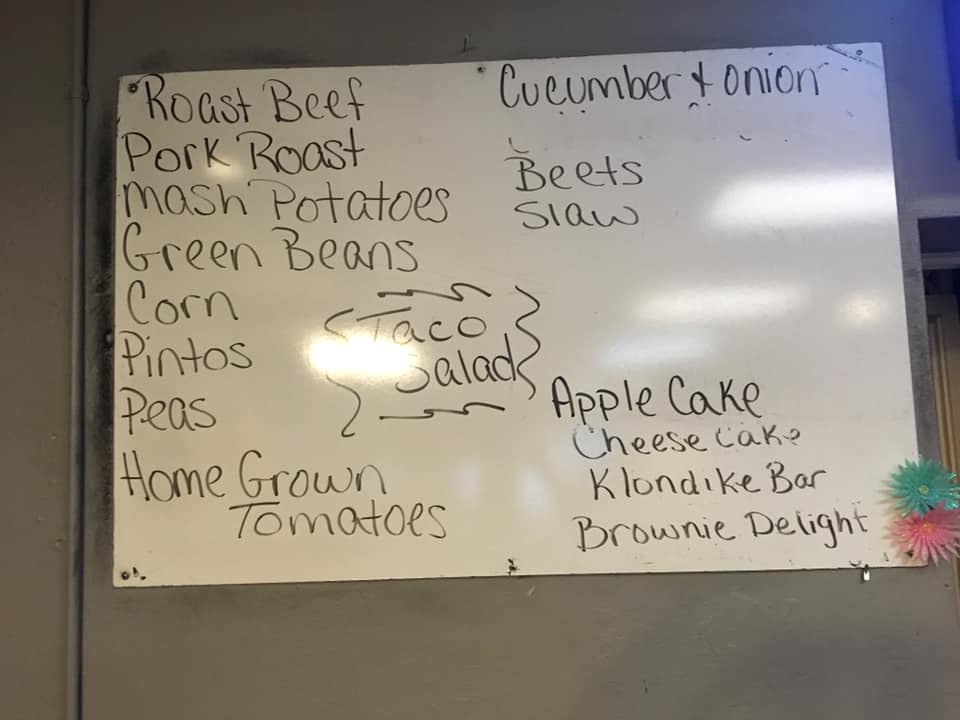 Roast Beef
Pork Roast
Mash Potatoes
Green Beans
Corn
Pintos
Peas
Home Grown
Tomatoes
Taco
Salad
Cucumber & onion
Beets
Slaw
Apple Cake
Cheese Cake
Klondike Bar
Brownie Delight